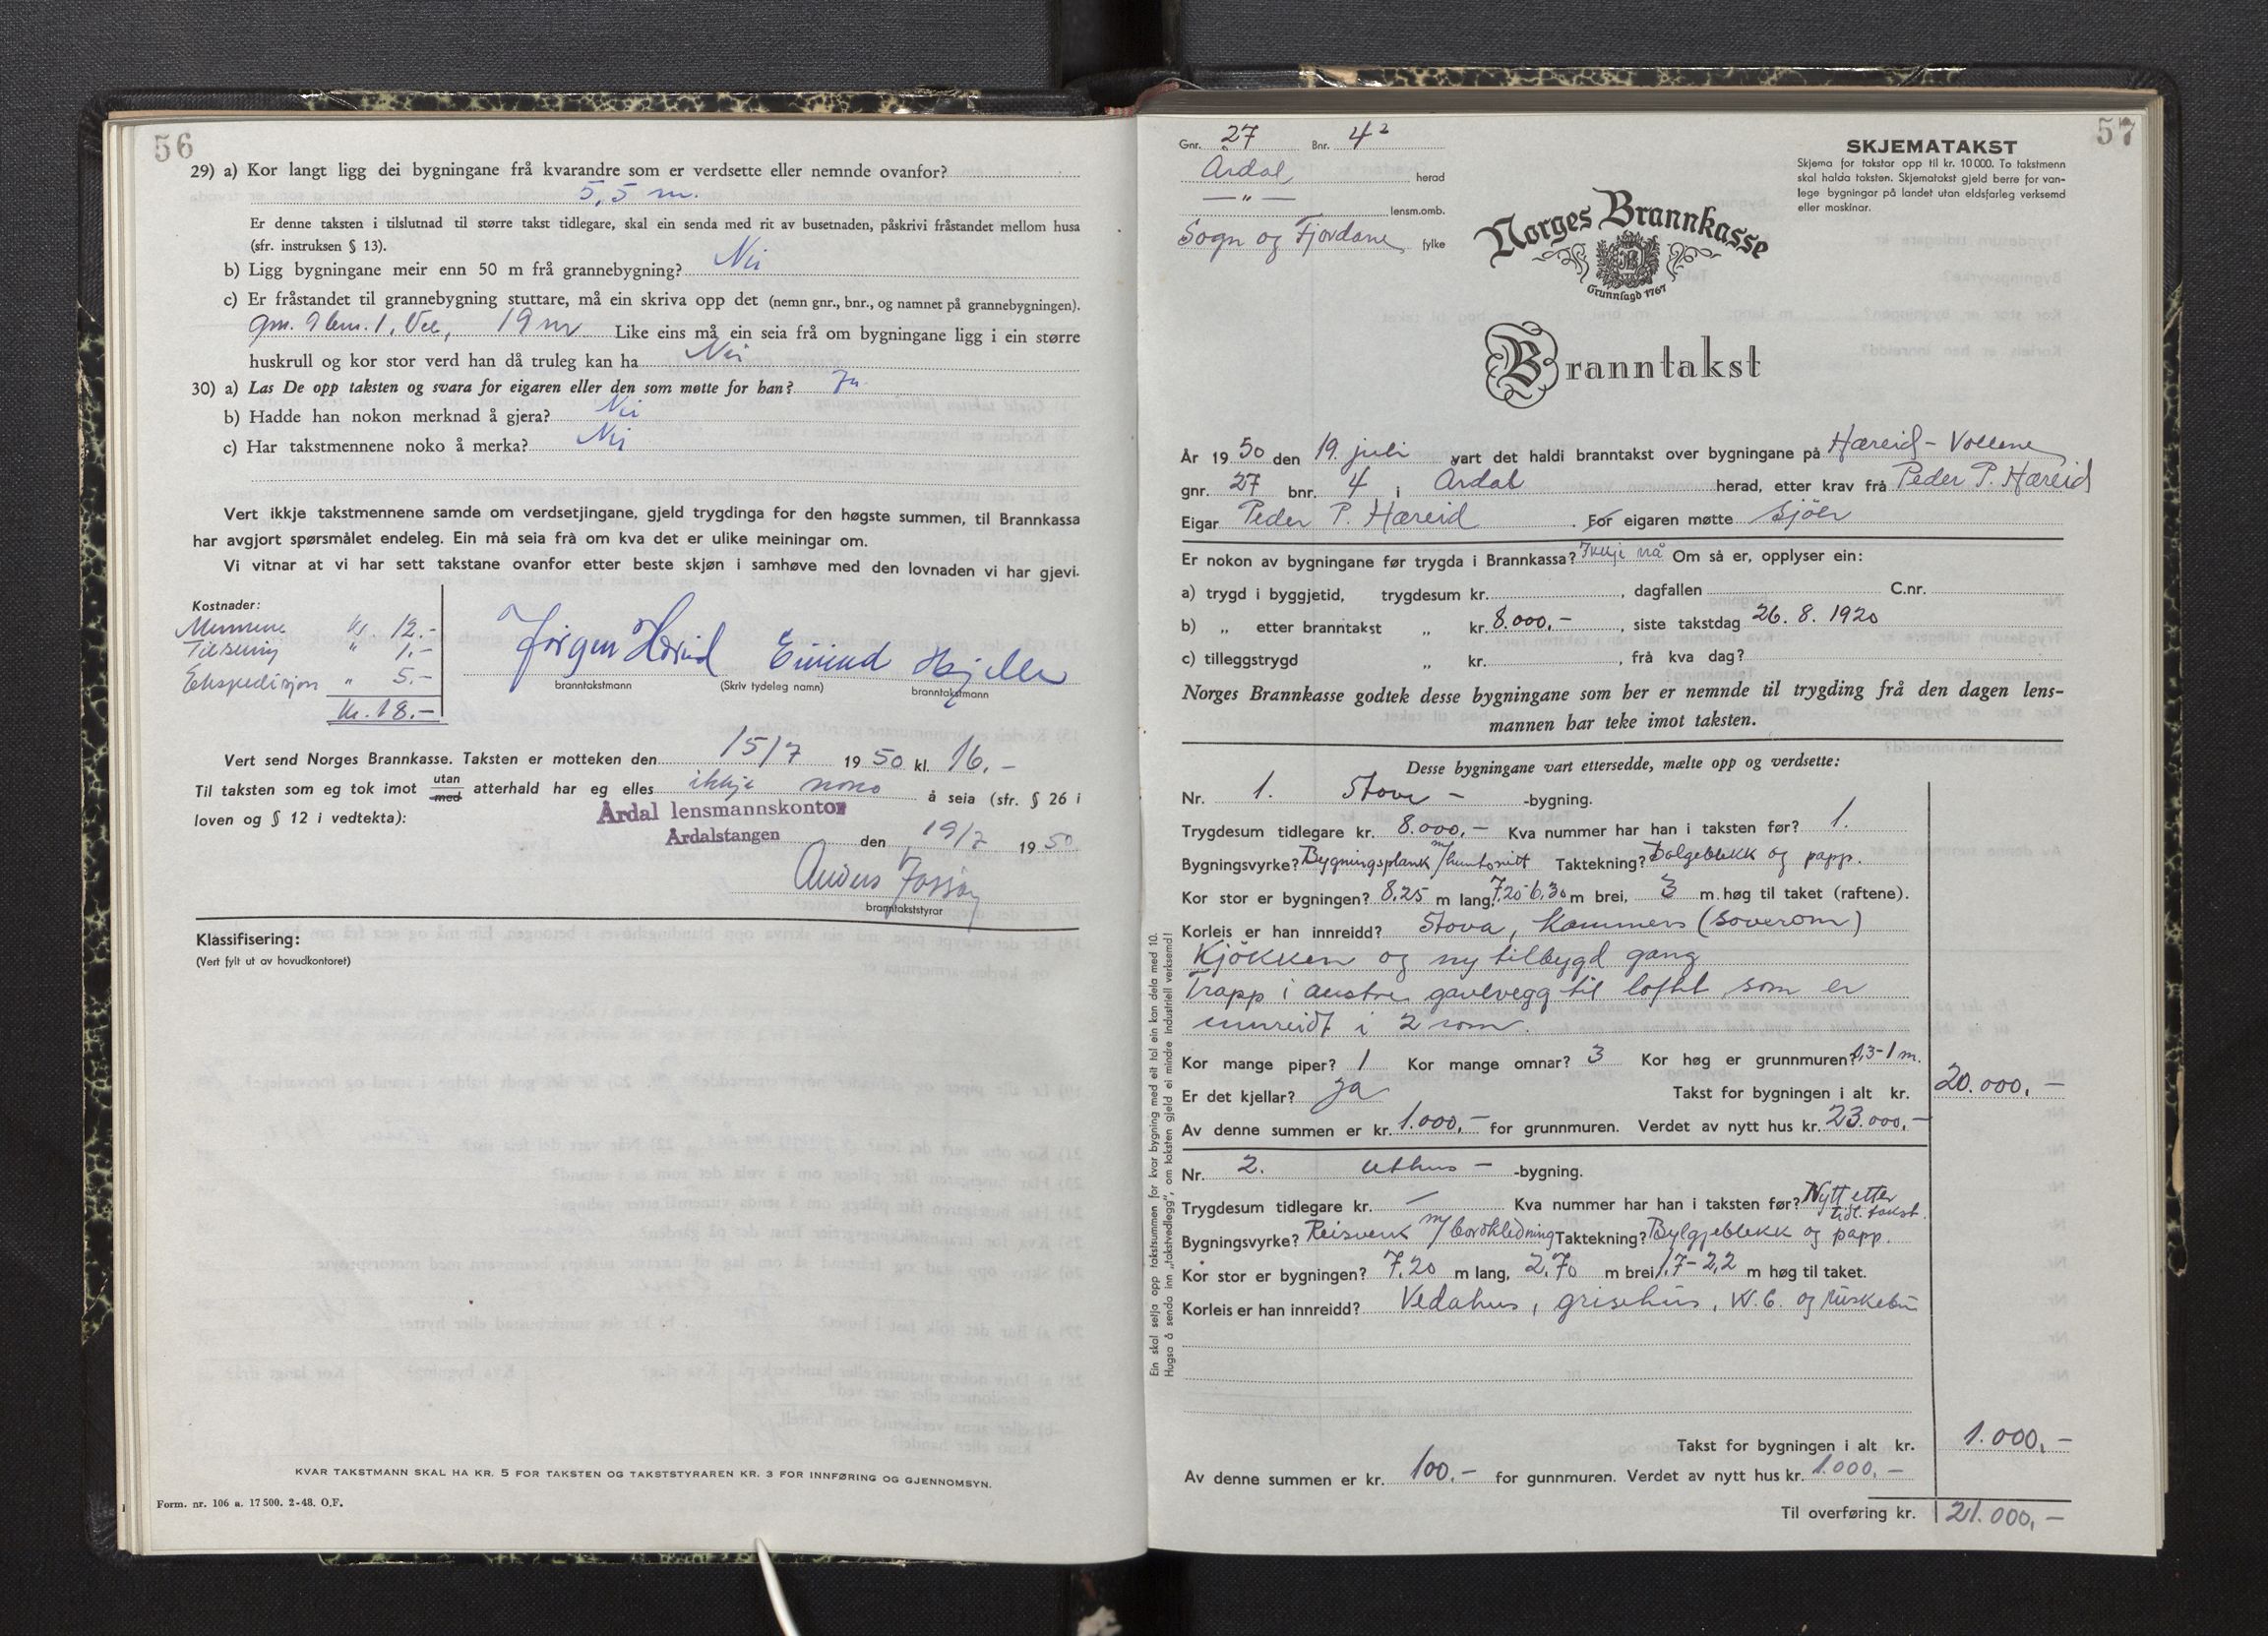 56
29) a) Kor langt ligg dei bygningane frå kvarandre som er verdsette eller nemnde ovanfor?
5,5 m.
Er denne taksten i tilslutnad til større takst tidlegare, skal ein senda med rit av busetnaden, påskrivi fråstandet mellom husa
(sfr. instruksen § 13).
b) Ligg bygningane meir enn 50 m frå grannebygning? Nei
c) Er fråstandet til grannebygning stuttare, må ein skriva opp det (nemn gnr., bnr., og namnet på grannebygningen).
gnr. 9 bnr. 1, Vee, 19 m Like eins må ein seia frå om bygningane ligg i ein større
huskrull og kor stor verd han då truleg kan ha Nei
30) a) Las De opp taksten og svara for eigaren eller den som møtte for han? Ja
b) Hadde han nokon merknad å gjera? Nei
c) Har takstmennene noko å merka? Nei
Vert ikkje takstmennene samde om verdsetjingane, gjeld trygdinga for den høgste summen, til Brannkassa
har avgjort spørsmålet endeleg. Ein må seia frå om kva det er ulike meiningar om.
Vi vitnar at vi har sett takstane ovanfor etter beste skjøn i samhøve med den lovnaden vi har gjevi.
Kostnader:
Mennene kr 12.-
Tilsening " 1,-
Ekspedisjon " 5.-
kr. 18.-
Jørgen Hæreid Eivind Hjelle
branntakstmann (Skriv tydeleg namn) branntakstmann
Vert send Norges Brannkasse. Taksten er motteken den 15/7 1950 kl. 16,-
Til taksten som eg tok imot utan med atterhald har eg elles ikkje noko å seia (sfr. § 26 i
loven og § 12 i vedtekta):
Årdal lensmannskontor
Årdalstangen den 19/7 1950
Anders
branntakststyrar
Klassifisering:
(Vert fylt ut av hovudkontoret)
KVAR TAKSTMANN SKAL HA KR. 5 FOR TAKSTEN OG TAKSTSTYRAREN KR. 3 FOR INNFØRING OG GJENNOMSYN.
Form. nr. 106 a. 17 500. 2-48. O.F.
57
Gnr. 27 Bnr. 4²
Årdal herad
— " — lensm.omb.
Sogn og Fjordane fylke
SKJEMATAKST
Skjema for takstar opp til kr. 10 000. To takstmenn
skal halda taksten. Skjematakst gjeld berre for van-
lege bygningar på landet utan eldsfarleg verksemd
eller maskinar.
Norges Brannkasse
Grunnlagd 1767
Branntakst
År 1950 den 19. juli vart det haldi branntakst over bygningane på Hæreid - Vollene
gnr. 27 bnr. 4 i Årdal herad, etter krav frå Peder P. Hæreid
Eigar Peder P. Hæreid. For eigaren møtte Sjölv
Er nokon av bygningane før trygda i Brannkassa? Ikkje nå Om så er, opplyser ein:
a) trygd i byggjetid, trygdesum kr. , dagfallen C.nr.
b) „ etter branntakst „ kr. 8.000,- , siste takstdag 26. 8. 1920
c) tilleggstrygd „ kr. , frå kva dag?
Norges Brannkasse godtek desse bygningane som her er nemnde til trygding frå den dagen lens-
mannen har teke imot taksten.
Desse bygningane vart ettersedde, mælte opp og verdsette:
Nr. 1. Stove - -bygning.
Trygdesum tidlegare kr. 8.000,- Kva nummer har han i taksten før? 1.
Bygningsvyrke? Bygningsplank m/huntonitt Taktekning? Bølgeblekk og papp.
Kor stor er bygningen? 8,25 m lang, 7.20 6,30 m brei, 3 m. høg til taket (raftene).
Korleis er han innreidd? Stova, Kammers (Soverom)
Kjökken og ny tilbygd gang
Trapp i austre gavlvegg til loftet som er
innreidt i 2 rom.
Kor mange piper? 1 Kor mange omnar? 3 Kor høg er grunnmuren? 0,3-1 m.
Er det kjellar? Ja Takst for bygningen i alt kr. 20.000,-
Av denne summen er kr. 1.000,- for grunnmuren. Verdet av nytt hus kr. 23.000,-
Nr. 2. Uthus - -bygning.
Trygdesum tidlegare kr. — Kva nummer har han i taksten før? Nytt etter
tidl. takst.
Bygningsvyrke? Reisverk m/bordkledning Taktekning? Bylgjeblekk og papp.
Kor stor er bygningen? 7,20 m lang, 2,70 m brei 1,7-2,2 m høg til taket.
Korleis er han innreidd? Vedahus, grisehus, W.C. og
Takst for bygningen i alt kr. 1.000,-
Av denne summen er kr. 100,- for gunnmuren. Verdet av nytt hus kr. 1.000,-
Til overføring kr. 21.000,-
Ein skal setja opp takstsummen for kvar bygning med eit tal ein kan dela med 10.
Hugsa å senda inn „takstvedlegg“, om taksten gjeld ei mindre industriell verksemd!